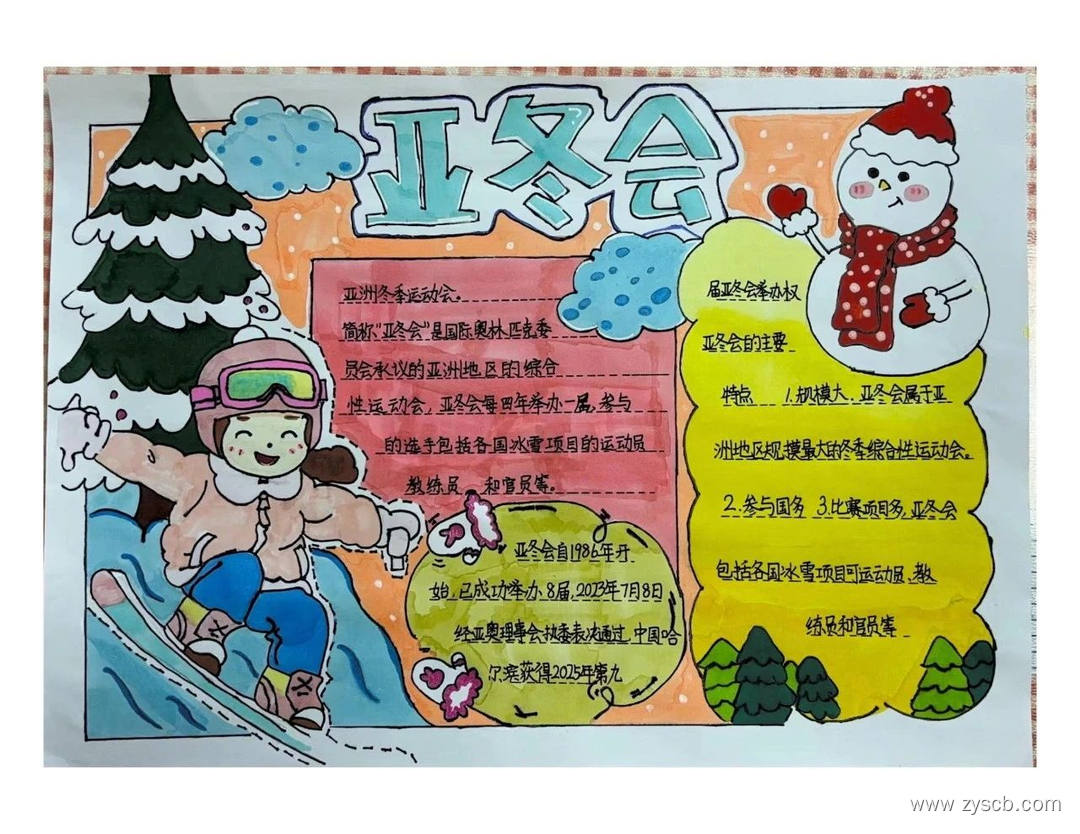 亚冬会
亚洲冬季运动会。
简称:“亚冬会”是国际奥林匹克委
员会承议的亚洲地区的综合
性运动会，亚冬会每四年举办一届，参与
的选手包括各国冰雪项目的运动员
教练员 和官员等。
亚冬会自1986年开
始，已成功举办8届，2023年7月8日
经亚奥理事会执委表决通过，中国哈
尔滨获得2025年第九
届亚冬会举办权
亚冬会的主要
特点 1.规模大，亚冬会属于亚
洲地区规模最大的冬季综合性运动会。
2.参与国多 3.比赛项目多，亚冬会
包括各国冰雪项目可运动员、教
练员和官员等
www.zyscb.com